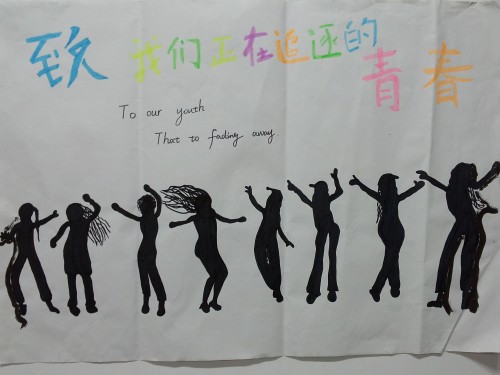 致 我们正在追逐的青春
To our youth
That to fading away.